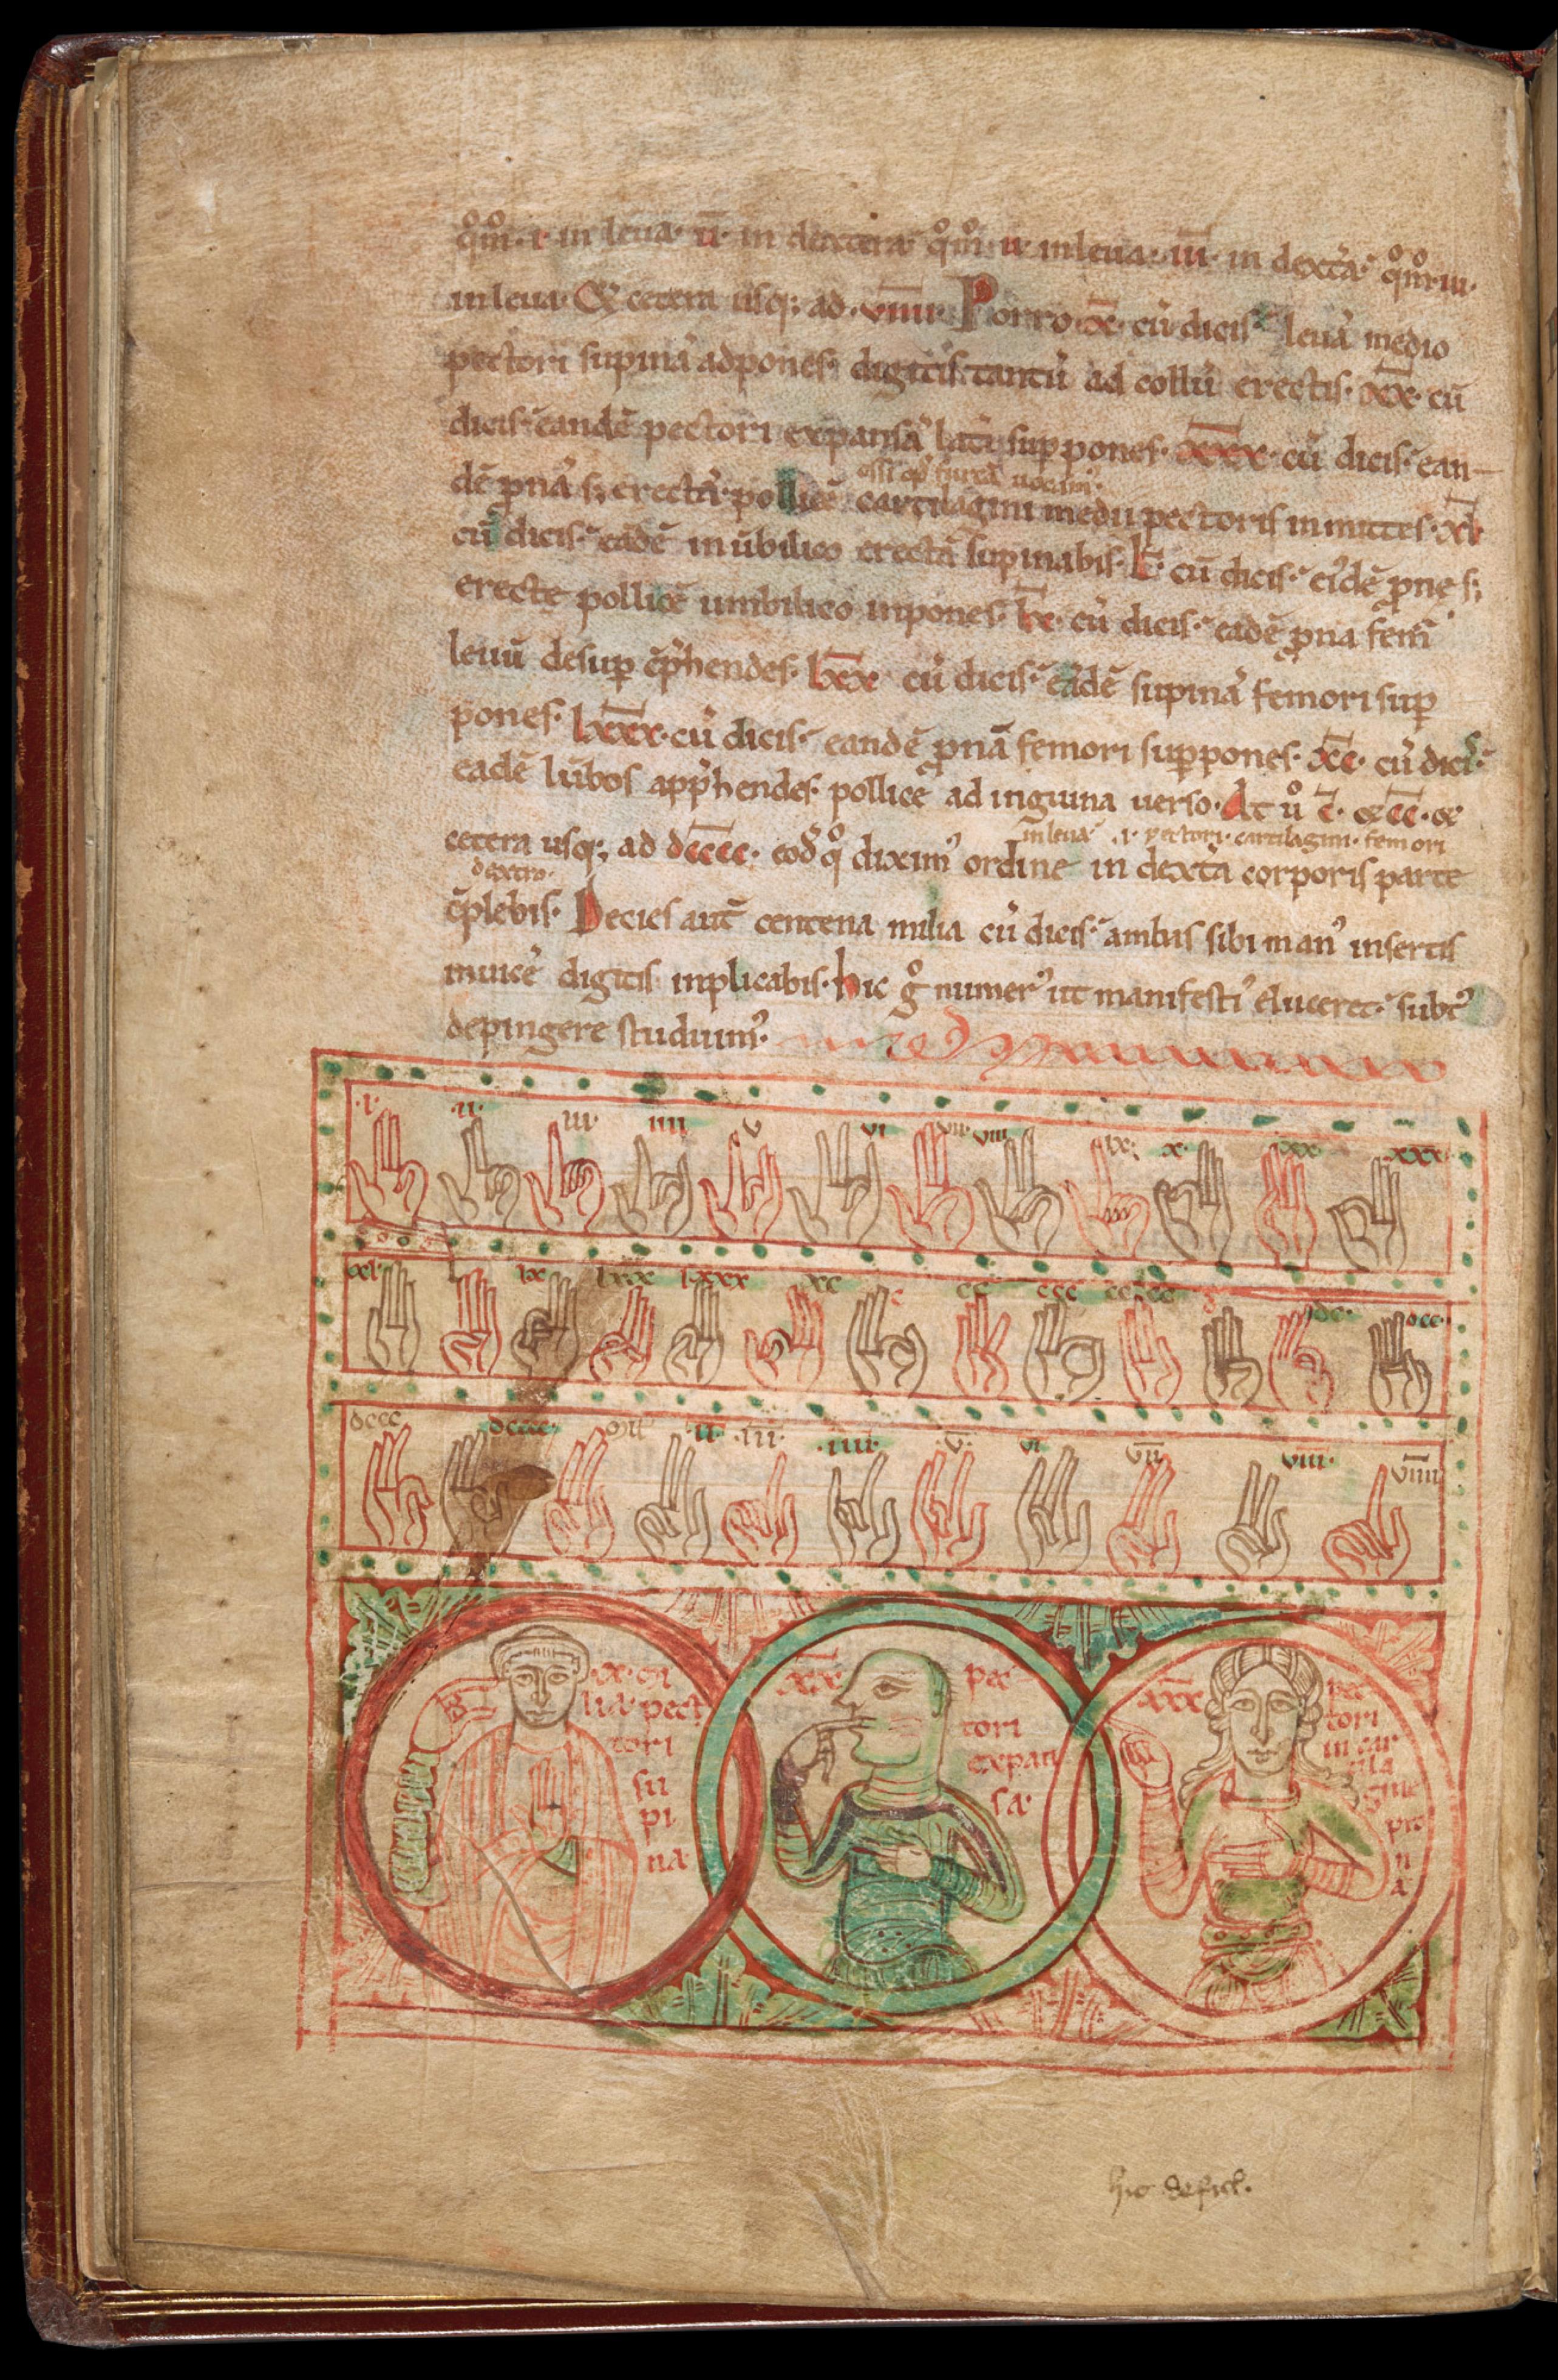 q̊m̊·i· in leua· ii· in dextera q̊m̊ ii· in leua· iii· in dext̄a q̊m̊ iii·
in leua· & cetera usq; ad· viiii· Porro· x̄· cū dicis leuā medio
pectori supinā adpones· digitis tantū ad collū erectis· x̄x̄· cū
dicis· eandē pectori expansā late suppones· x̄x̄x̄· cū dicis· ean-
dē pnā s; erectā pollicē cartilagini medii pectoris inmittes· xl
cū dicis· eādē in ūbilico erectā supinabis· l̄· cū dicis· ei'dē pnę s;
erecte pollicē umbilico inpones· lx· cū dicis· eādē pna femˀ
leuū desup cp̄hendes· lxx cū dicis· eādē supinā femori sup
pones· lxxx· cū dicis· eandē pnā femori suppones· xc· cū dicis
eādē lūbos app̄hendes· pollice ad inguina uerso· At ů c̄· & c̄c̄· &
in leua· i· pectori· cartilagini· femori
cetera usq; ad dcccc· eod̊ q̊ diximˀ ordine in dext̄a corporis parte
dextro·
cp̄lebis· Decies aut̄ centena milia cū dicis· ambas sibi manˀ insertis
inuicē digitis inplicabis· hic g̊ numerˀ ut manifestiˀ eluceret· subtˀ
depingere studuimˀ·
·i· ·ii· iii· iiii v vi vii· viii ix· x· xx· xxx
xl lx lxx lxxx xc c cc ccc cccc d dc· dcc·
dccc dcccc· mil ii· ·iii· ·iiii· ·v· vi vii viii· viiii
·x· in
pect
tori
su
pi
na
xx
pec
tori
expan
sa·
xxx
pec
tori
in car
tila
gine
pro
n
a
hic defic̄·